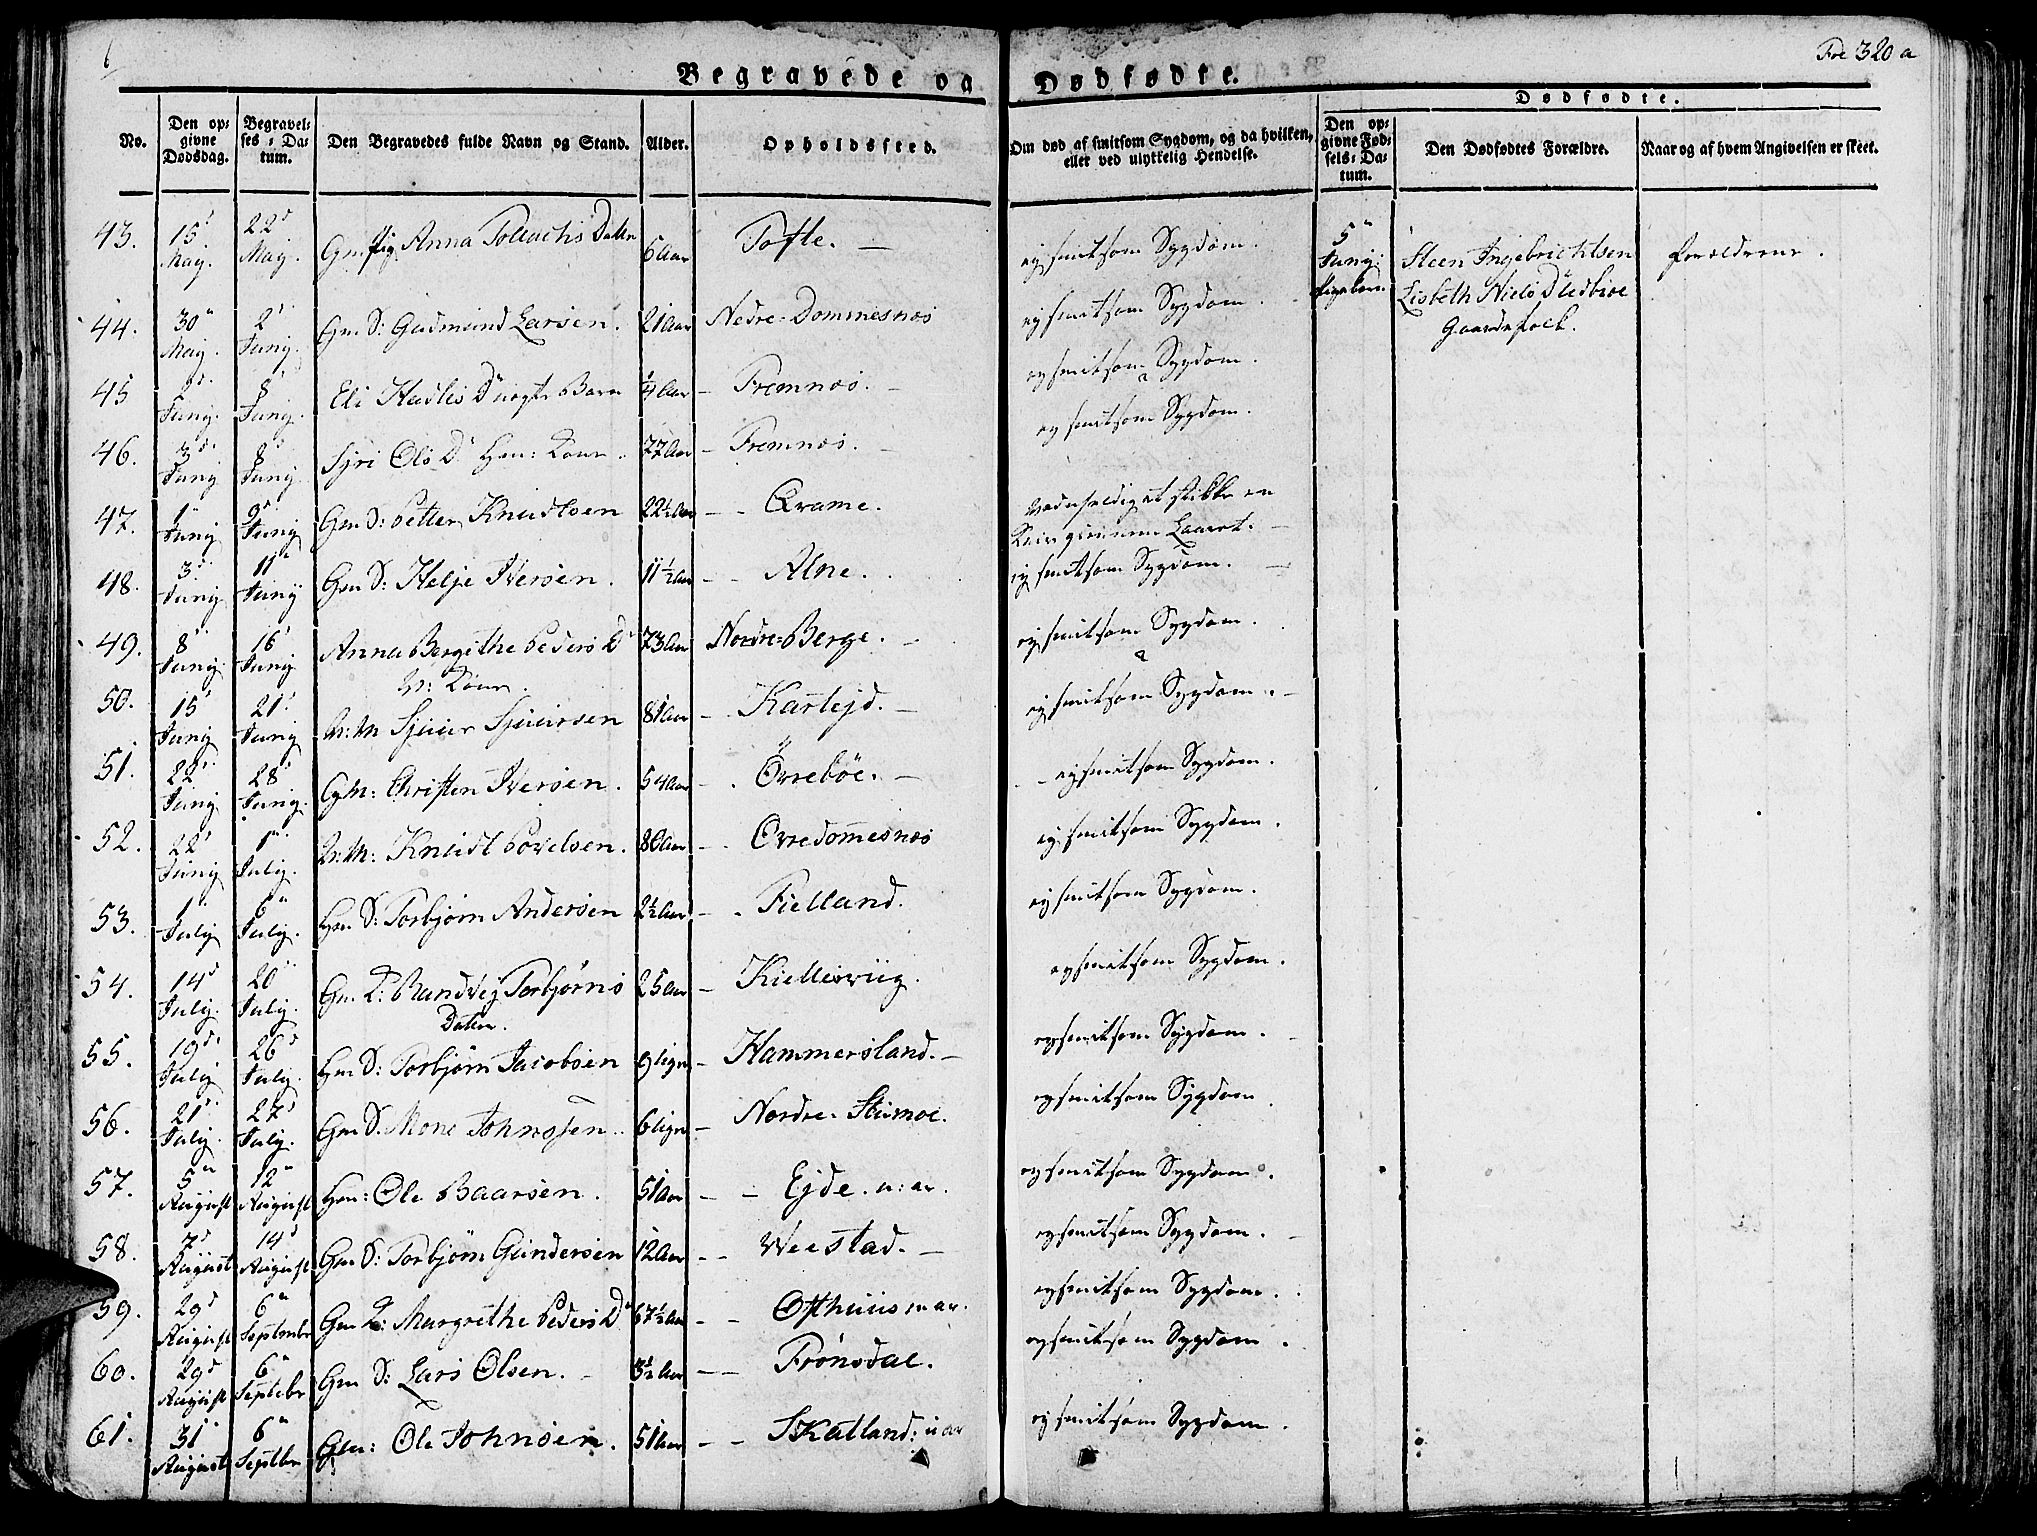 Fol 320 a
Begravede og Dødfødte.
No.
Den opgivne Dødsdag.
Begravelses-Datum.
Den Begravedes fulde Navn og Stand.
Alder.
Opholdssted.
Om død af smitsom Sygdom, og da hvilken, eller ved ulykkelig Hendelse.
Dødfødte.
Den opgivne Fødsels-Datum.
Den Dødfødtes Forældre.
Naar og af hvem Angivelsen er skeet.
43. 15d May. 22d May. Gm. Pig Anna Tollachs Datter 6 Aar Tofte. ej smitsom Sygdom.
5" Juny: Pigebarn. Steen Ingebrichtsen Lisbeth Niels D Ledbøe Gaardefolk. forældrene.
44. 30" May. 2d Juny. Gm S: Gudmund Larsen. 21 Aar Nedre-Dommesnæs ej smitsom Sygdom.
45 Juny. 8 Juny. Eli Hadles D uægte Barn ¼ Aar Fremnæs. ej smitsom Sygdom.
46. 3d Juny 8d Juny Syri Ols D Hm: Kone. 77 Aar Fremnæs. ej smitsom Sygdom.
47. 1" Juny 9d Juny Gm S: Petter Knudtsen 22½ Aar Qvame. stikke en Kniv giennem Laaret.
48. 3d Juny 11" Juny Gm S: Helje Iversen. 11½ Aar Alne. ej smitsom Sygdom.
49. 8" Juny 16d Juny Anna Bergithe Peders D 73 Aar Nordre-Berge. ej smitsom Sygdom.
Kone.
50. 15d Juny 21d Juny Sjuur Sjuursen 81 Aar Kartejd. ej smitsom Sygdom.
51. 22d Juny 28d Juny. Gm: Christen Iversen. 54 Aar Övrebøe. ej smitsom Sygdom.
52. 22d Juny 1" July. Knudt Povelsen. 80 Aar Ovredommesnæs ej smitsom Sygdom.
53. 1" July 6" July. Hm S: Torbjørn Andersen 2½ Aar Fielland. ej smitsom Sygdom.
54. 14d July. 20" July. Gm D: Randvej Torbjørns Datter. 25 Aar Kiellesviig. ej smitsom Sygdom.
55. 19d July 26d July. Hm S: Torbjørn Jacobsen 9 Ugr Hammersland. ej smitsom Sygdom.
56. 21d July. 27d July. Gm S. Mone Johnssen 6 Ugr Nordre-Stumoe. ej smitsom Sygdom
57. 5" August 12" August Hm: Ole Baarsen. 51 Aar Ejde. ej smitsom Sygdom.
58. 7d August 14d August Gm S: Torbjørn Gundersen 12 Aar Weestad. ej smitsom Sygdom.
59. 29d August 6" September Gm D: Margrethe Peders D 67½ Aar Ofthuus ej smitsom Sygdom.
60. 29d August 6" Septebr Gm S: Lars Olsen. 3½ Aar Frønsdal. ej smitsom Sygdom.
61. 31d August 6" Septbr Gm: Ole Johnsen. 51 Aar Skatland: ej smitsom Sygdom.